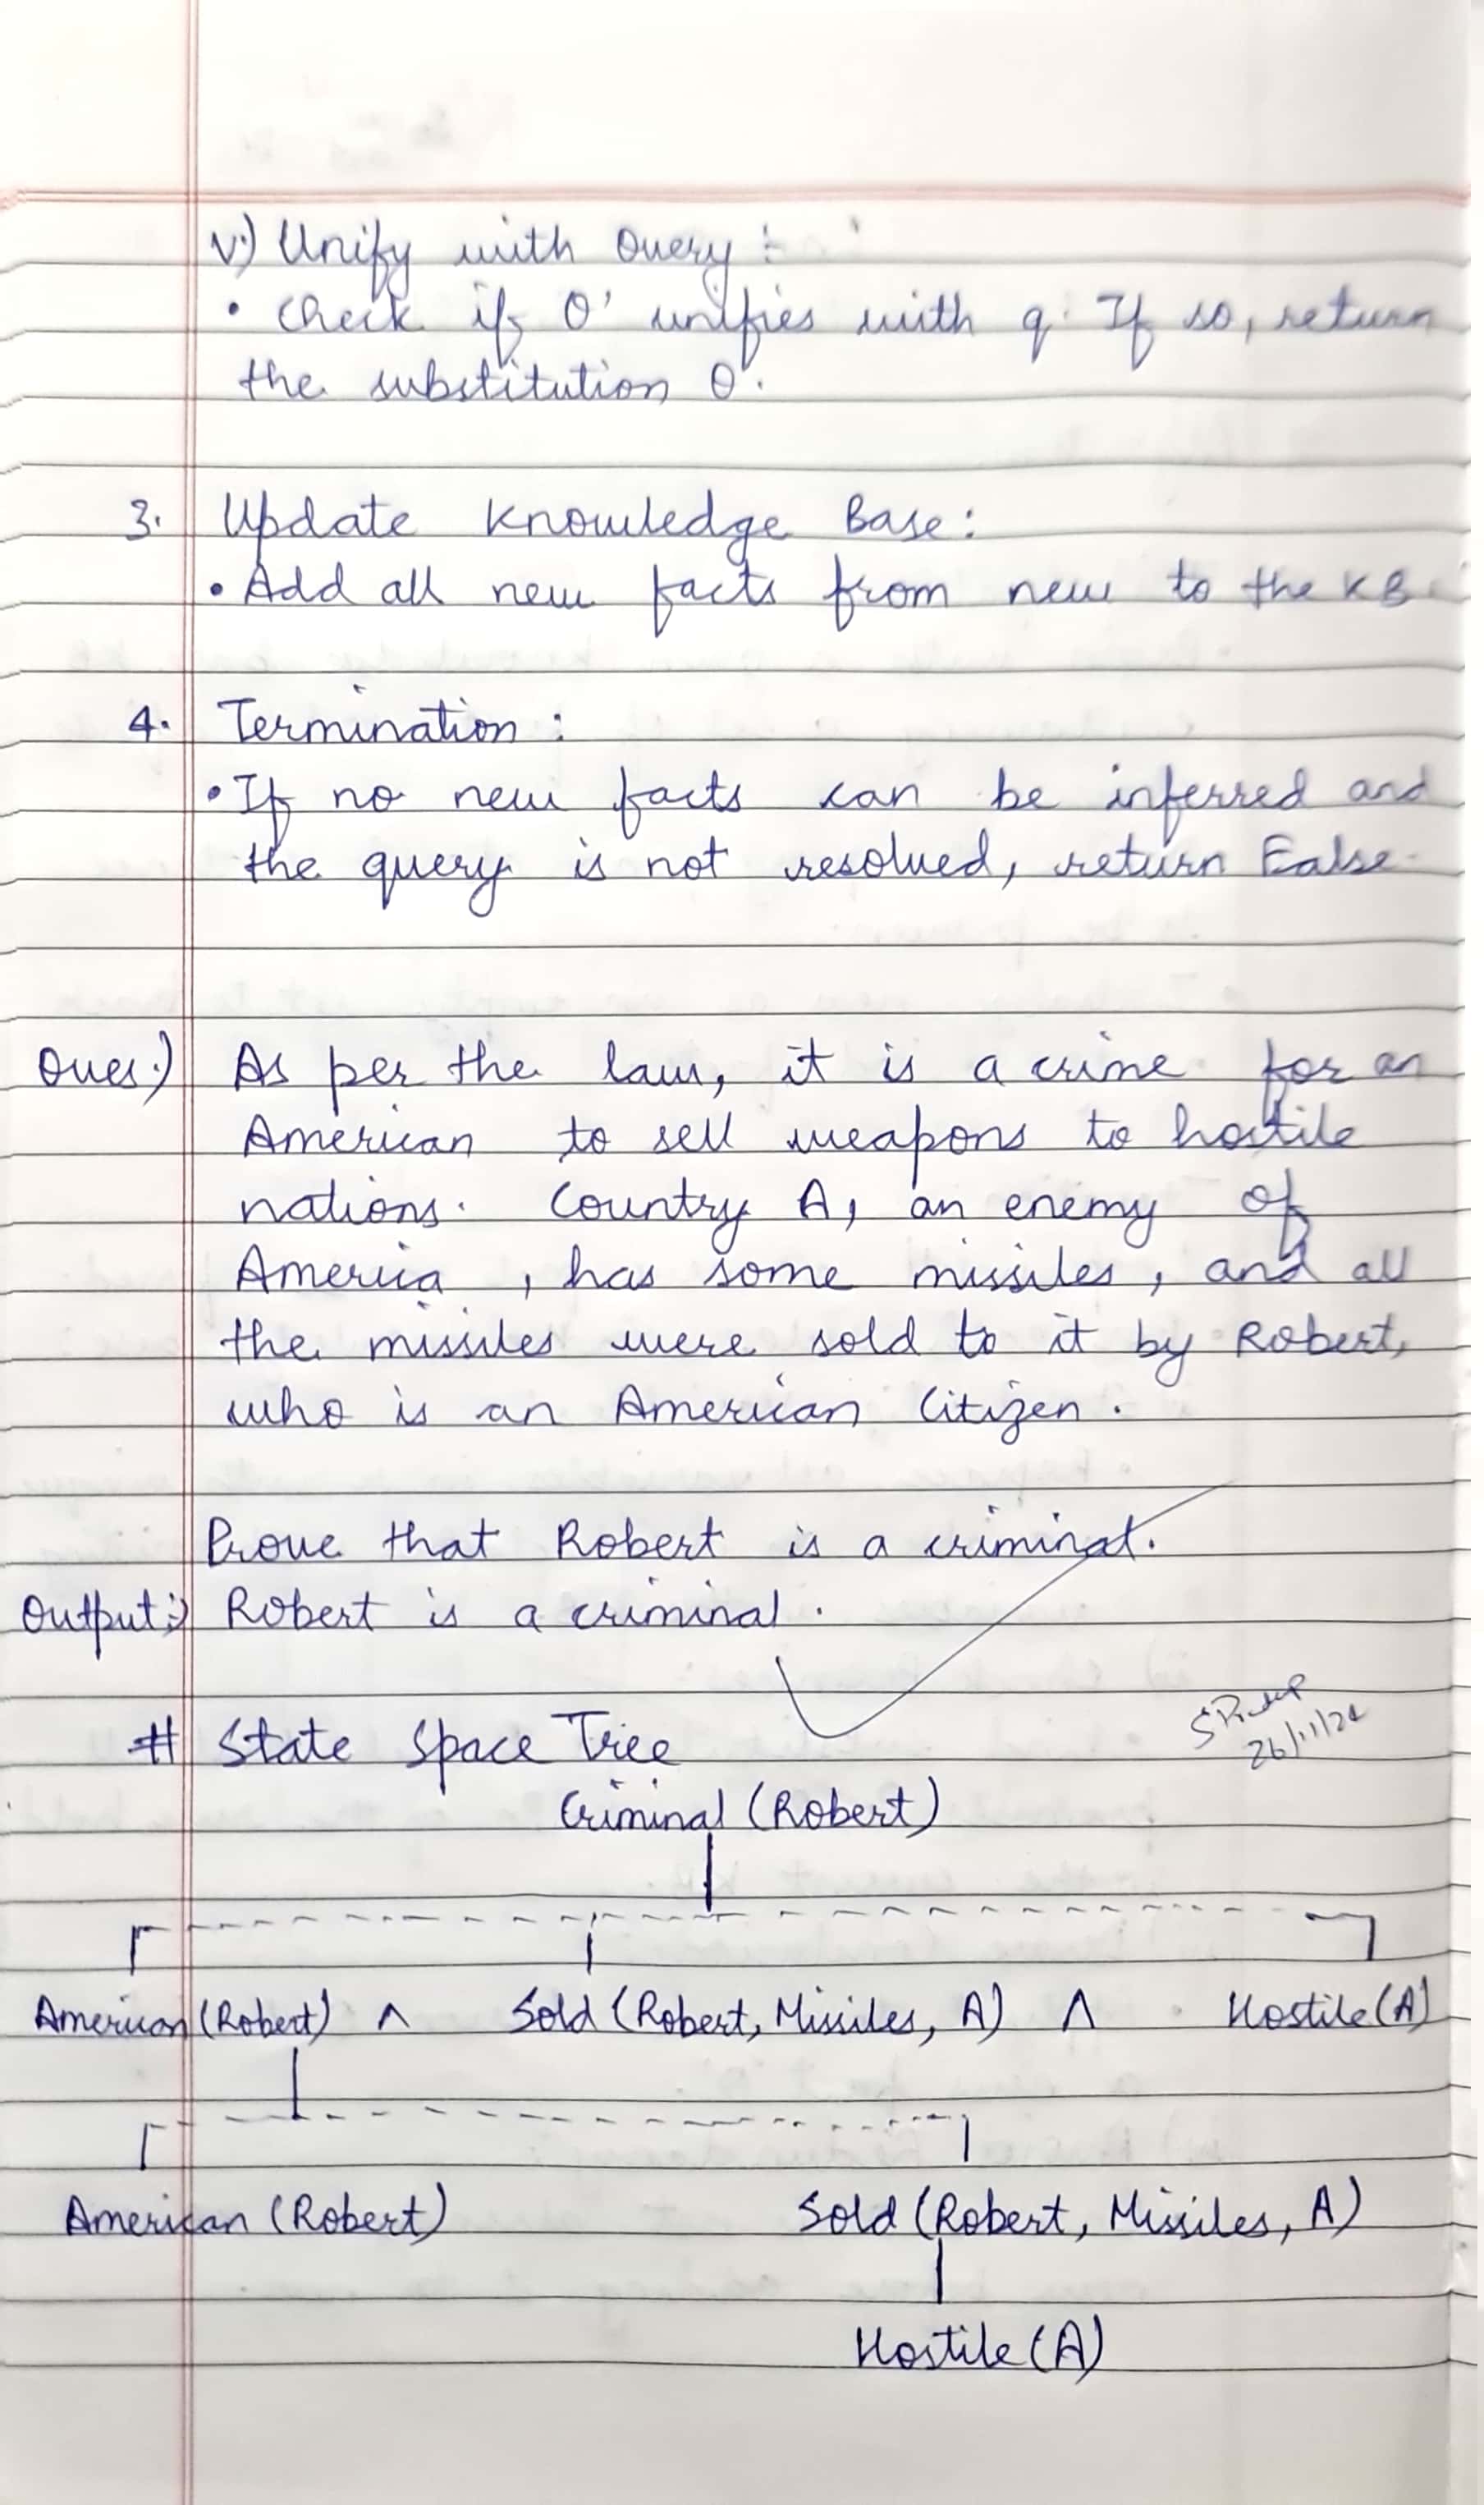 v.) Unify with Query :
• Check if θ' unifies with q. If so, return
the substitution θ'.
3. Update Knowledge Base:
• Add all new facts from new to the KB.
4. Termination:
• If no new facts can be inferred and
the query is not resolved, return False.
Ques.) As per the law, it is a crime for an
American to sell weapons to hostile
nations. Country A, an enemy of
America , has some missiles, and all
the missiles were sold to it by Robert,
who is an American Citizen.
Prove that Robert is a criminal.
Output:) Robert is a criminal.
# State Space Tree
26/11/24
Criminal (Robert)
American (Robert) ∧ Sold (Robert, Missiles, A) ∧ Hostile (A)
American (Robert) Sold (Robert, Missiles, A)
Hostile (A)